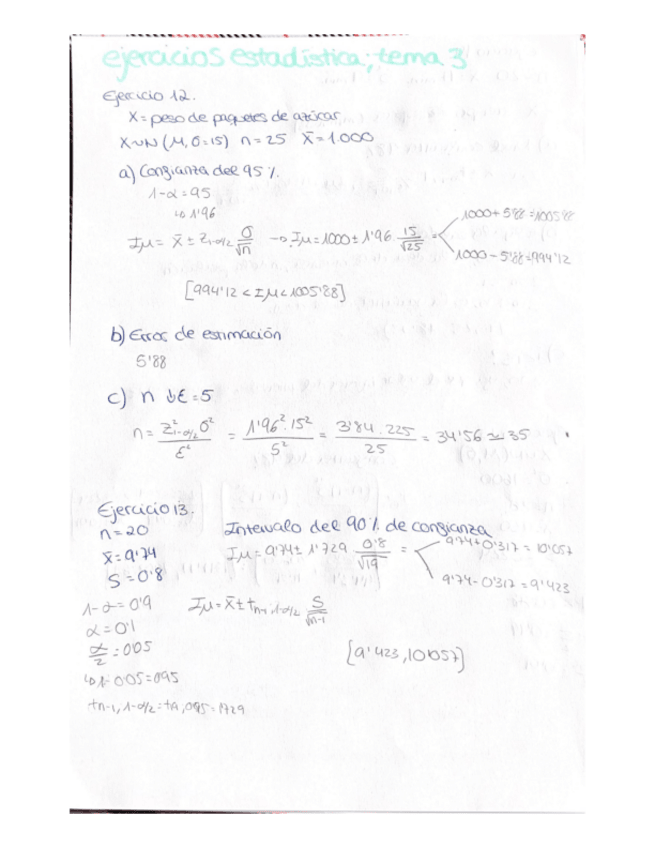 ejercicios estadística; tema 3
Ejercicio 12.
X = peso de paquetes de azúcar
X∼N (M, σ=15) n = 25 X̄ = 1.000
a) Confianza del 95 %.
1-α = 95
↳ 1'96
Iμ = X̄ ± Z1-α/2 σ/√n → Iμ = 1000 ± 1'96 · 15/√25 =
1000 + 5'88 = 1005'88
1000 - 5'88 = 994'12
[994'12 < Iμ < 1005'88]
b) Error de estimación
5'88
c) n ↓ε = 5
n = Z²1-α/2 σ² / ε² = 1'96² · 15² / 5² = 3'84 · 225 / 25 = 34'56 ≃ 35
Ejercicio 13.
n = 20 Intervalo del 90 % de confianza
X̄ = 9'74 Iμ = 9'74 ± 1'729 0'8/√19 =
9'74 + 0'317 = 10'057
9'74 - 0'317 = 9'423
S = 0'8
1-α = 0'9 Iμ = X̄ ± tn-1, 1-α/2 S/√n-1
α = 0'1
α/2 = 0'05
[9'423, 10'057]
↳ 1-0'05 = 0'95
tn-1, 1-α/2 = t19, 0'95 = 1'729